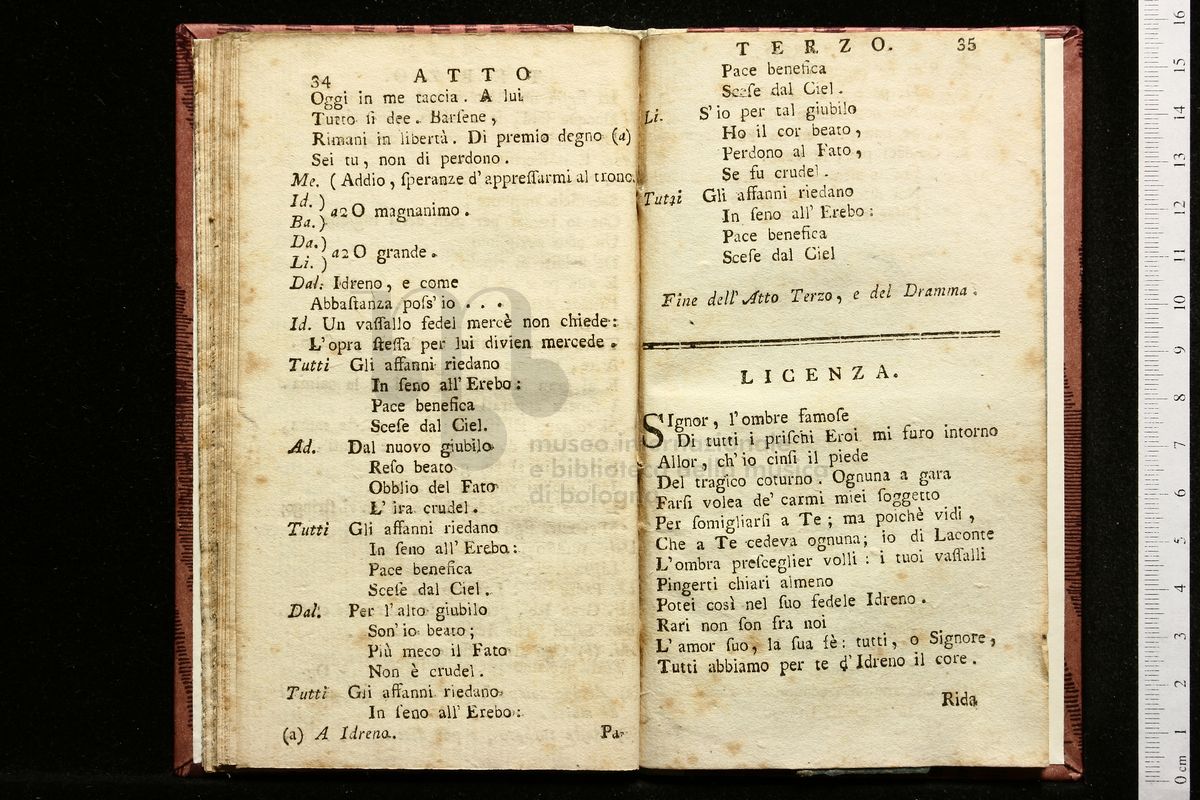 34 ATTO
Oggi in me taccia. A lui
Tutto si dee. Barsene,
Rimani in libertà. Di premio degno (a)
Sei tu, non di perdono.
Me. (Addio, speranze d'appressarmi al trono.
Id. )
Ba. ) a2 O magnanimo.
Da. )
Li. ) a2 O grande.
Dal. Idreno, e come
Abbastanza poss'io . . .
Id. Un vassallo fedel mercè non chiede:
L'opra stessa per lui divien mercede.
Tutti Gli affanni riedano
In seno all'Erebo:
Pace benefica
Scese dal Ciel.
Ad. Dal nuovo giubilo
Reso beato
Obblio del Fato
L'ira crudel.
Tutti Gli affanni riedano
In seno all'Erebo:
Pace benefica
Scese dal Ciel.
Dal. Per l'alto giubilo
Son'io beato;
Più meco il Fato
Non è crudel.
Tutti Gli affanni riedano
In seno all'Erebo:
(a) A Idreno. Pa-
TERZO. 35
Pace benefica
Scese dal Ciel.
Li. S'io per tal giubilo
Ho il cor beato,
Perdono al Fato,
Se fu crudel.
Tutti Gli affanni riedano
In seno all'Erebo:
Pace benefica
Scese dal Ciel
Fine dell'Atto Terzo, e del Dramma.
LICENZA.
SIgnor, l'ombre famose
Di tutti i prischi Eroi mi furo intorno
Allor, ch'io cinsi il piede
Del tragico coturno. Ognuna a gara
Farsi volea de' carmi miei soggetto
Per somigliarsi a Te; ma poichè vidi,
Che a Te cedeva ognuna; io di Laconte
L'ombra presceglier volli: i tuoi vassalli
Pingerti chiari almeno
Potei così nel suo fedele Idreno.
Rari non son fra noi
L'amor suo, la sua fè: tutti, o Signore,
Tutti abbiamo per te d'Idreno il core.
Rida
museo internazionale
e biblioteca della musica
di bologna
16
15
14
13
12
11
10
9
8
7
6
5
4
3
2
1
0 cm